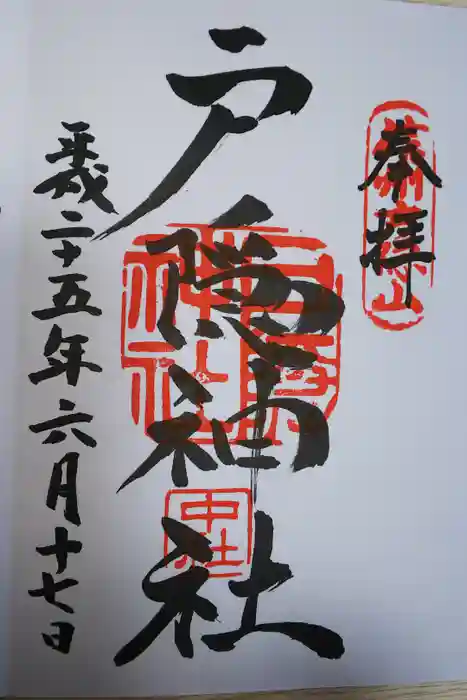 奉拝
戸隠神社
中社
平成二十五年六月十七日